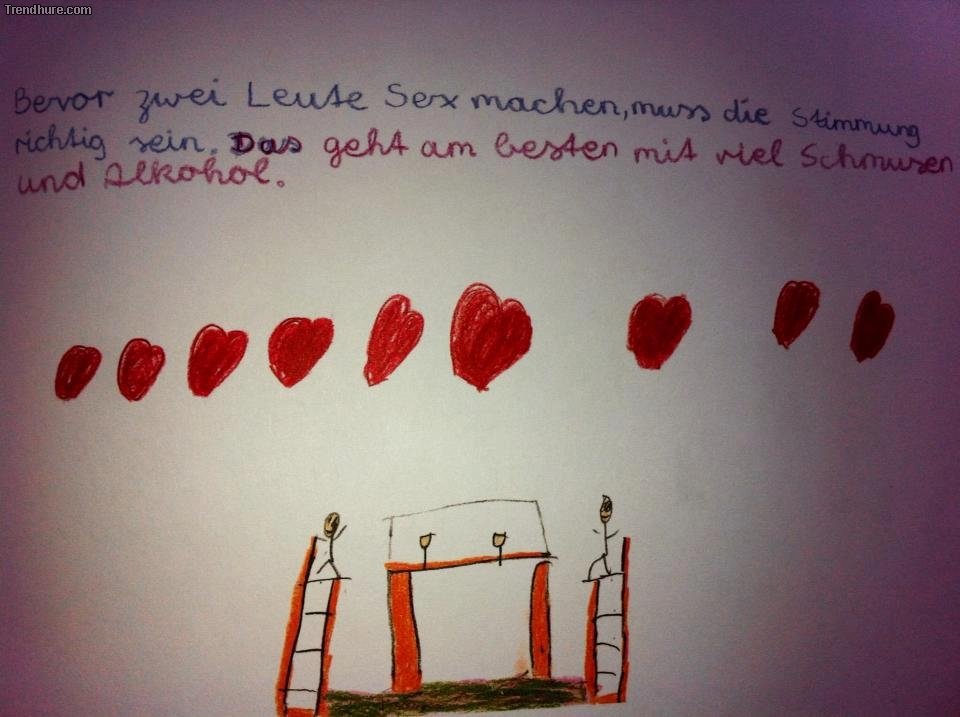 Trendhure.com
Bevor zwei Leute Sex machen, muss die Stimmung
richtig sein. Das geht am besten mit viel Schmusen
und Alkohol.